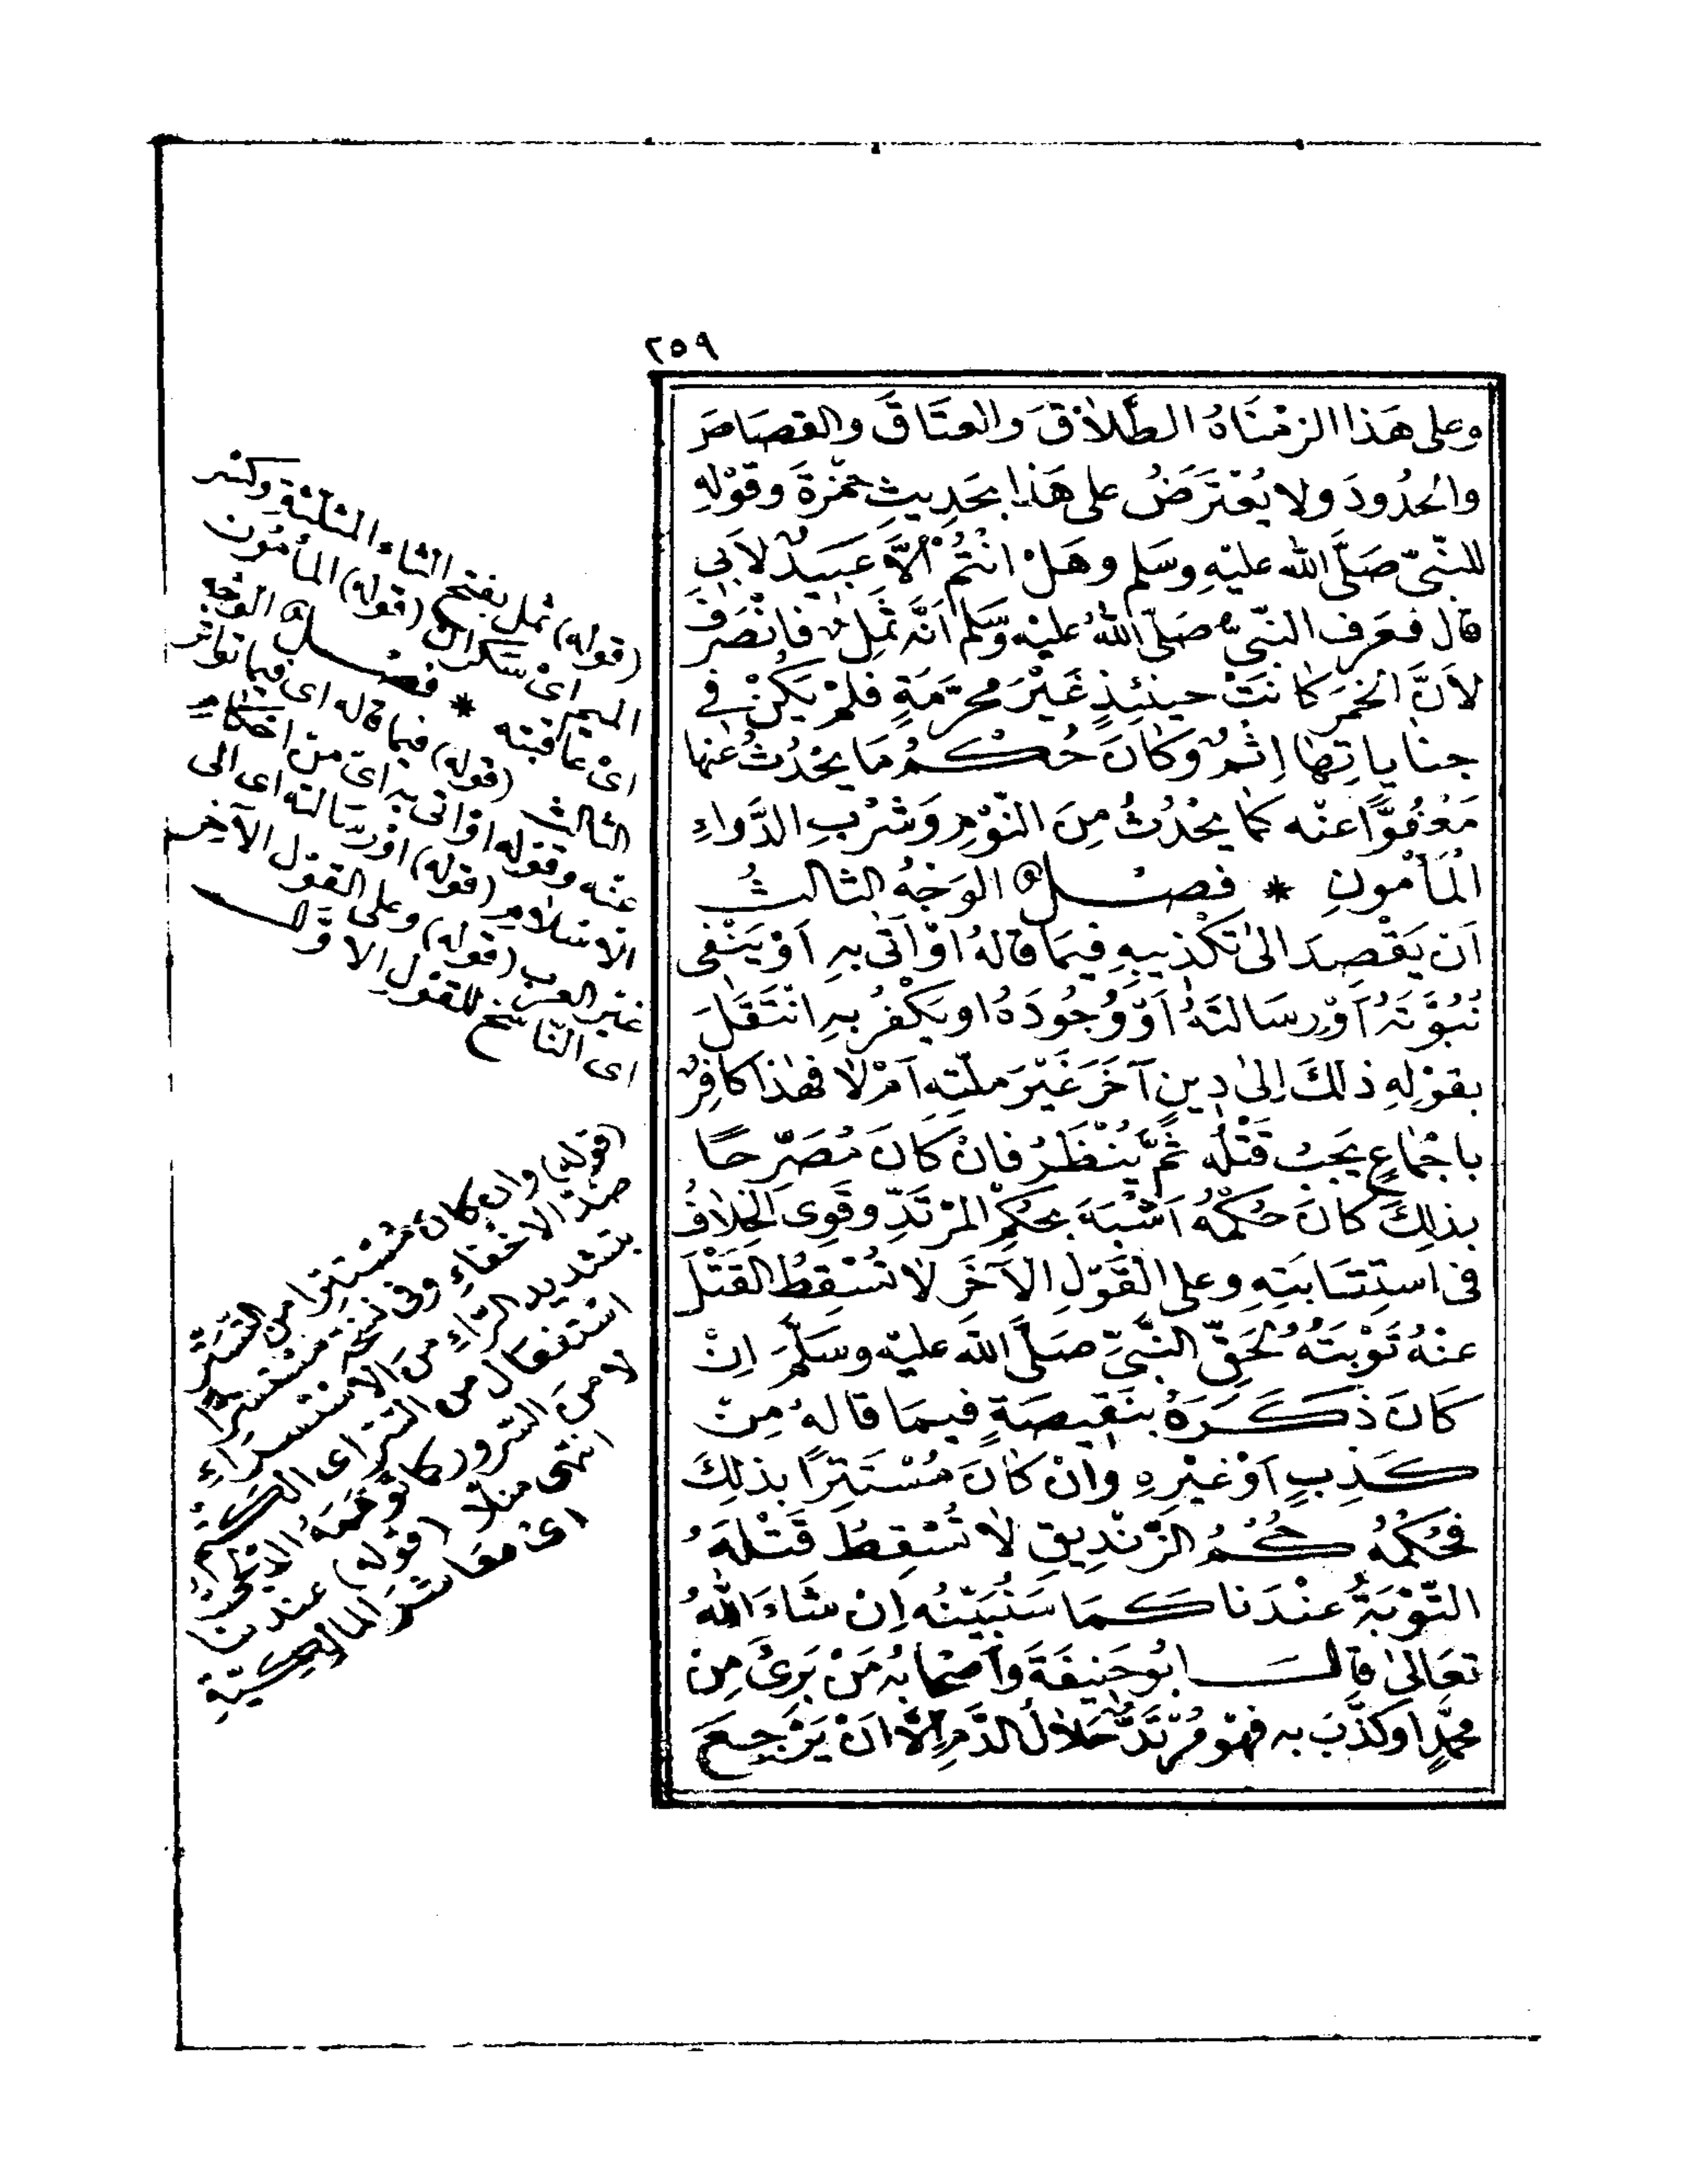 ٢٥٩
وعلى هَذا الزمْنَاهُ الطَّلاقَ وَالعتَاقَ والقصَاصَ
والحدُودَ ولا يُعْتَرَضُ على هَذا بحَدِيثِ حَمْزَةَ وقوْلِهِ
للنَّبيّ صَلَّى الله عليْهِ وسَلم وهَلْ انْتُمْ اِلَّا عَبيدٌ لاَبي
قال فعَرفَ النَّبيّ صَلّى اللهُ عليْهِ وَسَلم اَنَّه ثَمِلٌ فانْصَرَفَ
لاَنَّ الخمرَ كانَتْ حينئِذٍ غَيْرَ محرَّمَةٍ فلمْ يَكُنْ في
جنايا تِهَا اِثمٌ وَكانَ حُكْمُ مَا يحْدُثُ عَنها
مَعْفُوًّا عنْه كما يحْدُثُ مِنَ النّوْمِ وَشرْبِ الدَّوَاءِ
الْمَأمُونِ * فصْل الوَجْهُ الثالثُ
اَن يَقْصِدَ الىٰ تَكْذِيبِهِ فِيمَا قالهُ اوْ اَتٰى بِهِ اَوْ يَنْفى
نُبُوَّتَهُ اَوْ رسَالتَهُ اَوْ وُجُودَهُ او يَكْفُرُ بِهِ انْتَقَلَ
بقوْلِهِ ذلكَ اِلىٰ دِينٍ آخَرَ غَيْرَ ملّتِه اَمْ لا فهٰذا كافِرٌ
باجْماعٍ يَجبُ قَتْلُه ثمَّ يُنْظَرُ فانْ كَانَ مُصَرّحًا
بذلِكَ كانَ حُكمُهُ اَشْبَهَ بحكمِ المرْتَدِّ وقَوِى الخِلاَفُ
فى استِتَابَتِهِ وعلى القَوْلِ الآخَرِ لا تُسْقِطُ القَتْلَ
عنْهُ تَوْبَتُهُ لحَقّ النَّبيّ صَلَّى اللهُ عليْه وسَلَّمَ اِنْ
كَانَ ذكَرَهُ بنَقِيصَةٍ فيمَا قالهُ مِنْ
كَذِبٍ اَوْ غيْرِهِ وَانْ كانَ مُسْتَتِرًا بذلِكَ
فحُكمُهُ حُكْمُ الزّنْدِيقِ لا تُسْقِطُ قَتْلَهُ
التّوْبَةُ عنْدَنا كَمَا سَنُبَيّنُه اِن شَاءَ اللهُ
تعَالىٰ قالَ ابُو حَنِيفَةَ وَاَصْحَابُهُ مَنْ بَرِئَ مِنْ
محمَّدٍ او كذَّبَ به فهُوَ مُرْتَدٌّ حَلالُ الدَّمِ اِلَّا اَنْ يَرْجِعَ
(قوله) ثمل بفتح الثاء المثلثةِ وكسر
الميم اىْ سَكران (قوله) المأمُون
اىْ عَاقبته * فصْل الوَجه
الثالث (قوله) فيما قاله اى فيما تواتر
عنْه وقوْله او اتى به اىْ من احكام
الاسْلام (قوله) اوْ رسَالته اى الى
غيْر العرب (قوله) وعلى القوْل الآخر
اى النّاسخ للقوْل الاوّل
(قوله) وان كانَ مُسْتَتِرا من التّستّر
ضدّ الاخفاءِ وفى نسخة مسْتسرًّا
بتشديد الرّاءِ منَ الاسْتسرَاءِ
استفعَال من السّر اى الكتْم
لا منَ السّرور كما توهّمَهُ الدّلجى
انتهى منلا (قوله) عندنا
اىْ معَاشرَ المالكيّةِ